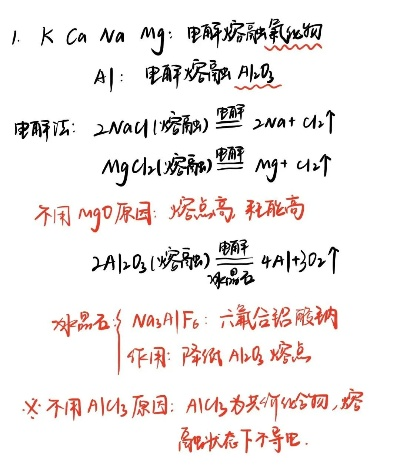 1. K Ca Na Mg: 电解熔融氯化物
Al: 电解熔融 Al₂O₃
电解法: 2NaCl(熔融) 电解 == 2Na+Cl₂↑
MgCl₂(熔融) 电解 == Mg+Cl₂↑
不用MgO原因: 熔点高, 耗能高
2Al₂O₃(熔融) 电解 == 冰晶石 4Al+3O₂↑
冰晶石{ Na₃AlF₆: 六氟合铝酸钠
作用: 降低Al₂O₃熔点
※不用AlCl₃原因: AlCl₃为共价化合物, 熔
融状态下不导电.